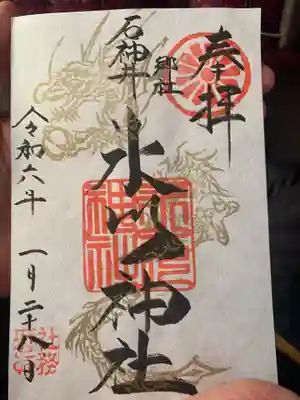 奉拝
郷社
石神井
氷川神社
令和六年 一月二十八日
社務